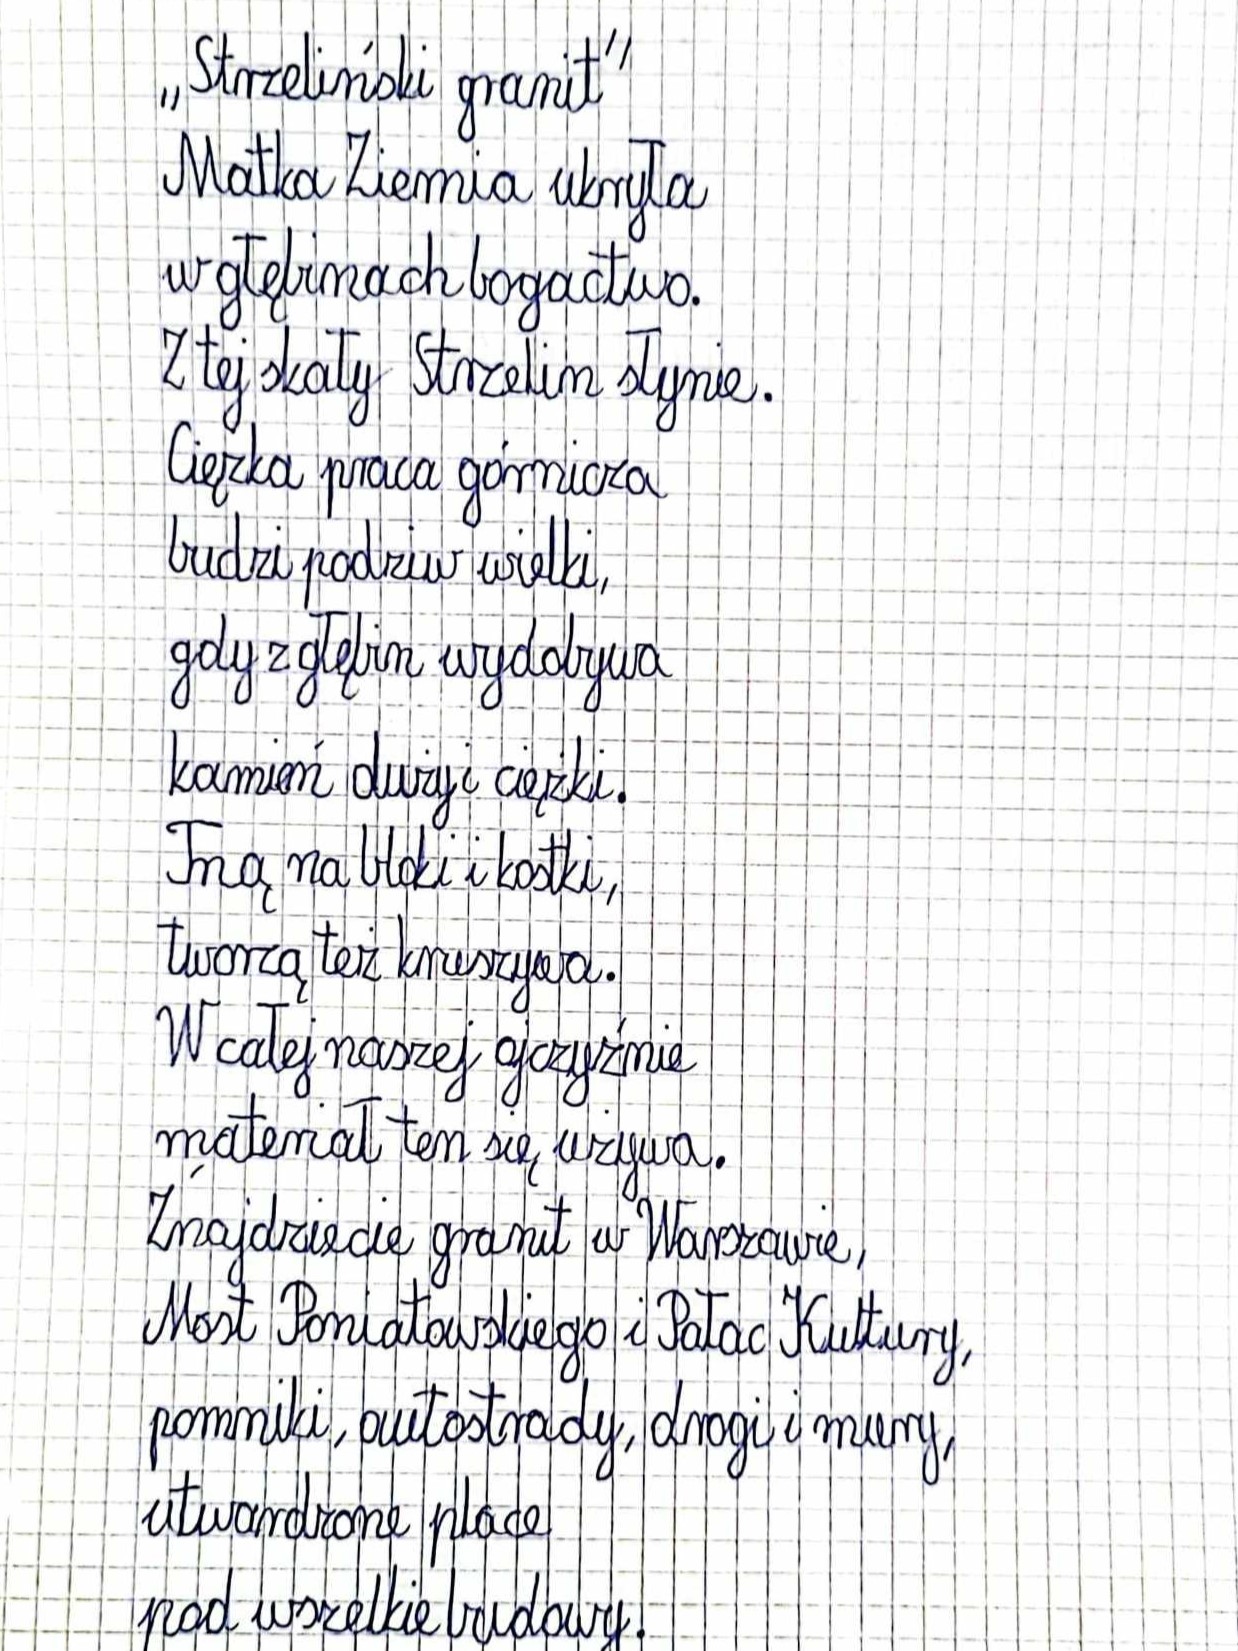 „Strzeliński granit”
Matka Ziemia ukryła
w głębinach bogactwo.
Z tej skały Strzelin słynie.
Ciężka praca górnicza
budzi podziw wielki,
gdy z głębin wydobywa
kamień duży i ciężki.
Tną na bloki i kostki,
tworzą też kruszywa.
W całej naszej ojczyźnie
materiał ten się używa.
Znajdziecie granit w Warszawie,
Most Poniatowskiego i Pałac Kultury,
pomniki, autostrady, drogi i mury,
utwardzone place
pod wszelkie budowy.